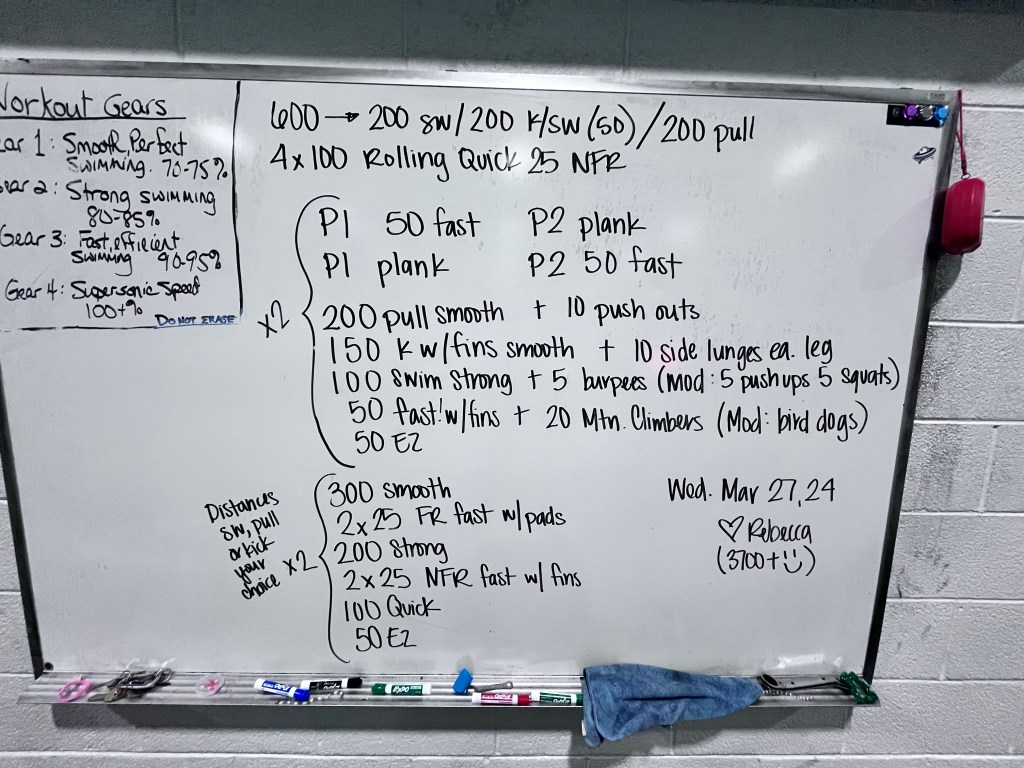 Workout Gears
ear 1: Smooth, Perfect
Swimming. 70-75%
ear 2: Strong swimming
80-85%
Gear 3: Fast, efficient
Swimming 90-95%
Gear 4: Supersonic Speed
100+%
DO NOT ERASE
600 → 200 sw/200 K/SW (50)/200 pull
4x100 Rolling Quick 25 NFR
x2
P1 50 fast P2 plank
P1 plank P2 50 fast
200 pull smooth + 10 push outs
150 K w/fins smooth + 10 side lunges ea. leg
100 Swim Strong + 5 burpees (Mod: 5 pushups 5 squats)
50 fast! w/fins + 20 Mtn. Climbers (Mod: bird dogs)
50 EZ
Distances
sw, pull
or kick
your
choice
x2
300 smooth
2x25 FR fast w/pads
200 Strong
2x25 NFR fast w/ fins
100 Quick
50 EZ
Wed. Mar 27, 24
♡ Rebecca
(3700+☺)
EXPO
EXPO